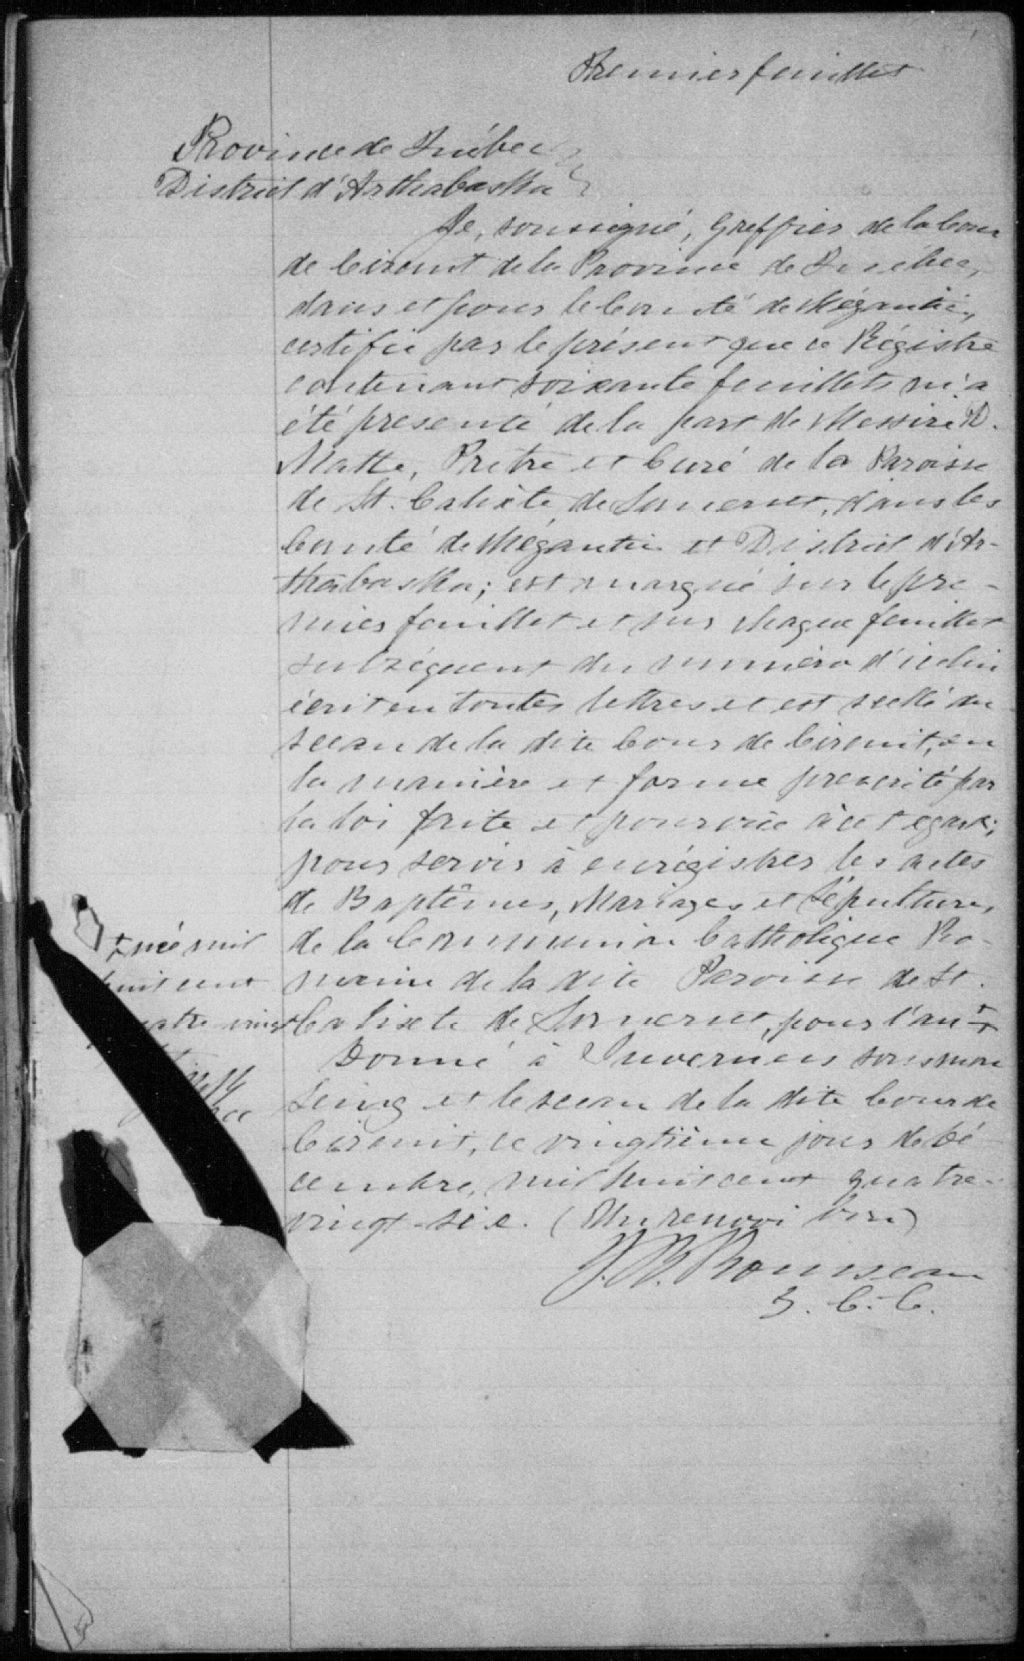 Premier feuillet
Province de Québec
District d'Arthabaska
Je, soussigné, Greffier de la Cour
de Circuit de la Province de Québec,
dans et pour le Comté de Mégantic,
certifie par le présent que ce Régistre
contenant soixante feuillets m'a
été présenté de la part de Messire D.
Matte, Prêtre et Curé de la Paroisse
de St. Calixte de Somerset, dans les
Comté de Mégantic et District d'Ar-
thabaska; est marqué sur le pre-
mier feuillet et sur chaque feuillet
subséquent du numéro d'icelui
écrit en toutes lettres et est scellé du
sceau de la dite Cour de Circuit, en
la manière et forme prescrite par
la loi faite et pourvue à cet egard;
pour servir à enrégistrer les actes
de Baptêmes, Mariages et Sépultures
de la Communion Catholique Ro-
maine de la dite Paroisse de St.
Calixte de Somerset, pour l'an +
Donné à Inverness sous mon
Seing et le sceau de la dite Cour de
Circuit, ce vingtième jour de Dé
cembre, mil huit cent quatre-
vingt-six. (Un renvoi bon)
J. B. Rousseau
G. C. C.
+ mil
huit cent
quatre vingt